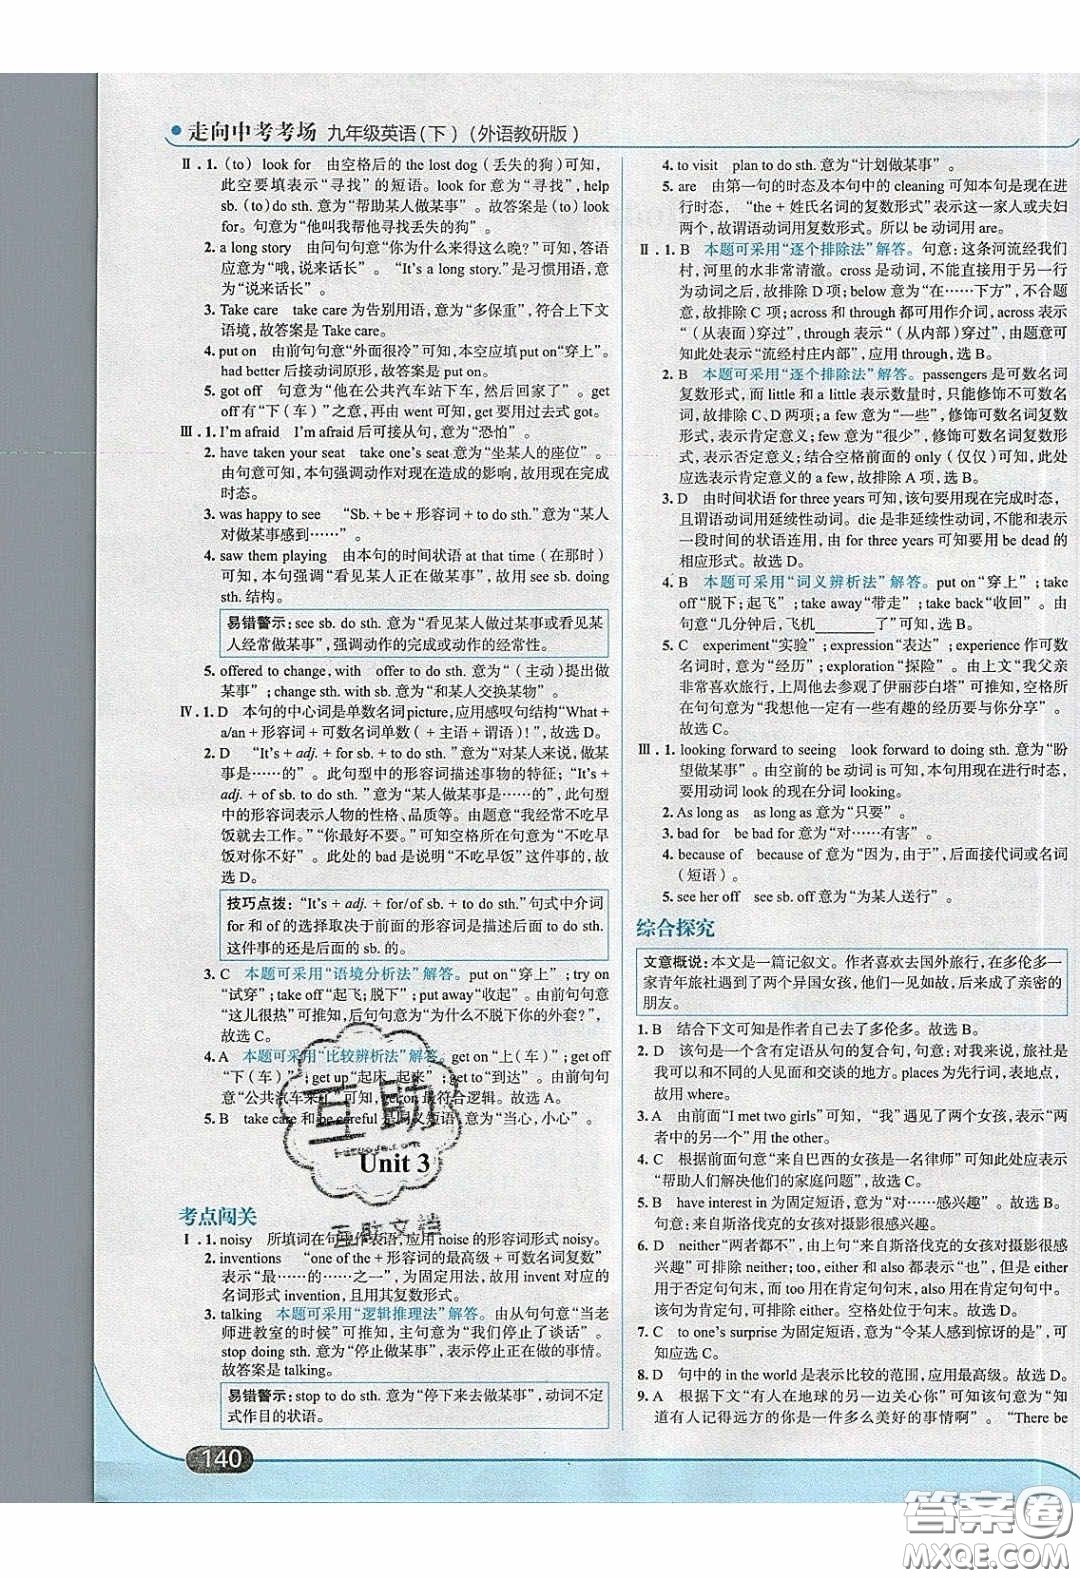 走向中考考场 九年级英语(下)(外语教研版)
Ⅱ.1.(to) look for 由空格后的 the lost dog(丢失的狗)可知,
此空要填表示“寻找”的短语。look for 意为“寻找”,help
sb.(to)do sth.意为“帮助某人做某事”。故答案是(to)look
for。句意为“他叫我帮他寻找丢失的狗”。
2. a long story 由问句句意“你为什么来得这么晚?”可知,答语
应意为“哦,说来话长”。“It's a long story.”是习惯用语,意
为“说来话长”。
3. Take care take care 为告别用语,意为“多保重”,符合上下文
语境,故答案是 Take care。
4. put on 由前句句意“外面很冷”可知,本空应填 put on“穿上”。
had better 后接动词原形,故答案是 put on。
5. got off 句意为“他在公共汽车站下车,然后回家了”。get
off 有“下(车)”之意,再由 went 可知,get 要用过去式 got。
Ⅲ.1. I'm afraid I'm afraid 后可接从句,意为“恐怕”。
2. have taken your seat take one's seat 意为“坐某人的座位”。
由句意可知,本句强调动作对现在造成的影响,故用现在完成
时态。
3. was happy to see “Sb. + be + 形容词 + to do sth.”意为“某人
对做某事感到……”。
4. saw them playing 由本句的时间状语 at that time(在那时)
可知,本句强调“看见某人正在做某事”,故用 see sb. doing
sth.结构。
易错警示:see sb. do sth. 意为“看见某人做过某事或看见某
人经常做某事”,强调动作的完成或动作的经常性。
5. offered to change, with offer to do sth. 意为“(主动)提出做
某事”;change sth. with sb. 意为“和某人交换某物”。
Ⅳ.1. D 本句的中心词是单数名词 picture,应用感叹句结构“What +
a/an + 形容词 + 可数名词单数(+ 主语 + 谓语)!”,故选 D。
2. D “It's + adj. + for sb. + to do sth.”意为“对某人来说,做某
事是……的”。此句型中的形容词描述事物的特征;“It's +
adj. + of sb. + to do sth.”意为“某人做某事是……的”,此句型
中的形容词表示人物的性格、品质等。由题意“我经常不吃早
饭就去工作。”“你最好不要。”可知空格所在句意为“不吃早
饭对你不好”。此处的 bad 是说明“不吃早饭”这件事的,故
选 D。
技巧点拨:“It's + adj. + for/of sb. + to do sth.”句式中介词
for 和 of 的选择取决于前面的形容词是描述后面 to do sth.
这件事的还是后面的 sb. 的。
3. C 本题可采用“语境分析法”解答。put on“穿上”;try on
“试穿”;take off“起飞;脱下”;put away“收起”。由前句句意
“这儿很热”可推知,后句句意为“为什么不脱下你的外套?”,
故选 C。
4. A 本题可采用“比较辨析法”解答。get on“上(车)”;get off
“下(车)”;get up“起床,起来”;get to“到达”。由前句句意
“公共汽车来了”可知,get on 最符合逻辑。故选 A。
5. B take care 和 be careful 是同义短语,意为“当心,小心”。
Unit 3
考点闯关
Ⅰ.1. noisy 所填词在句中作表语,应用 noise 的形容词形式 noisy。
2. inventions “one of the + 形容词的最高级 + 可数名词复数”
表示“最……的……之一”,为固定用法,故用 invent 对应的
名词形式 invention,且用其复数形式。
3. talking 本题可采用“逻辑推理法”解答。由从句句意“当老
师进教室的时候”可推知,主句意为“我们停止了谈话”。
stop doing sth. 意为“停止做某事”,表示停止正在做的事情。
故答案是 talking。
易错警示:stop to do sth. 意为“停下来去做某事”,动词不定
式作目的状语。
4. to visit plan to do sth. 意为“计划做某事”。
5. are 由第一句的时态及本句中的 cleaning 可知本句是现在进
行时态,“the + 姓氏名词的复数形式”表示这一家人或夫妇
两个,故谓语动词用复数形式。所以 be 动词用 are。
Ⅱ.1. B 本题可采用“逐个排除法”解答。句意:这条河流经我们
村,河里的水非常清澈。cross 是动词,不能直接用于另一行
为动词之后,故排除 D 项;below 意为“在……下方”,不合题
意,故排除 C 项;across 和 through 都可用作介词,across 表示
“(从表面)穿过”,through 表示“(从内部)穿过”,由题意可
知此处表示“流经村庄内部”,应用 through,选 B。
2. B 本题可采用“逐个排除法”解答。passengers 是可数名词
复数形式,而 little 和 a little 表示数量时,只能修饰不可数名
词,故排除 C、D 两项;a few 意为“一些”,修饰可数名词复数
形式,表示肯定意义;few 意为“很少”,修饰可数名词复数形
式,表示否定意义;结合空格前面的 only(仅仅)可知,此处
应选表示肯定意义的 a few,故排除 A 项,选 B。
3. D 由时间状语 for three years 可知,该句要用现在完成时态,
且谓语动词用延续性动词。die 是非延续性动词,不能和表示
一段时间的状语连用,由 for three years 可知要用 be dead 的
相应形式。故选 D。
4. B 本题可采用“词义辨析法”解答。put on“穿上”;take
off“脱下;起飞”;take away“带走”;take back“收回”。由
句意“几分钟后,飞机________了”可知,选 B。
5. C experiment“实验”;expression“表达”;experience 作可数
名词时,意为“经历”;exploration“探险”。由上文“我父亲
非常喜欢旅行,上周他去参观了伊丽莎白塔”可推知,空格所
在句句意为“我想他一定有一些有趣的经历要与你分享”。
故选 C。
Ⅲ.1. looking forward to seeing look forward to doing sth. 意为“盼
望做某事”。由空前的 be 动词 is 可知,本句用现在进行时态,
要用动词 look 的现在分词 looking。
2. As long as as long as 意为“只要”。
3. bad for be bad for 意为“对……有害”。
4. because of because of 意为“因为,由于”,后面接代词或名词
(短语)。
5. see her off see sb. off 意为“为某人送行”。
综合探究
文意概说:本文是一篇记叙文。作者喜欢去国外旅行,在多伦多一
家青年旅社遇到了两个异国女孩,他们一见如故,后来成了亲密的
朋友。
1. B 结合下文可知是作者自己去了多伦多。故选 B。
2. D 该句是一个含有定语从句的复合句,句意:对我来说,旅社是
我可以和不同的人见面和交谈的地方。places 为先行词,表地点,
故用 where。
3. A 由前面“I met two girls”可知,“我”遇见了两个女孩,表示“两
者中的另一个”用 the other。
4. C 根据前面句意“来自巴西的女孩是一名律师”可知此处应表示
“帮助人们解决他们的家庭问题”。故选 C。
5. B have interest in 为固定短语,意为“对……感兴趣”。故选 B。
句意:来自斯洛伐克的女孩对摄影很感兴趣。
6. D neither“两者都不”,由句意“来自斯洛伐克的女孩对摄影很感
兴趣”可排除 neither;too, either, also 都表示“也”,但是 either
用于否定句句末,而 too 用在肯定句句末,also 用在肯定句句中。
该句为肯定句,可排除 either。空格处位于句末。故选 D。
7. C to one's surprise 为固定短语,意为“令某人感到惊讶的是”,可
知应选 C。
8. D 句中的 in the world 是表示比较的范围,应用最高级。故选 D。
9. A 根据下文“有人在地球的另一边关心你”可知该句意为“知
道有人记得远方的你是一件多么美好的事情啊”。“There be
140
互助
互助文档
答案圈
MXQE.COM